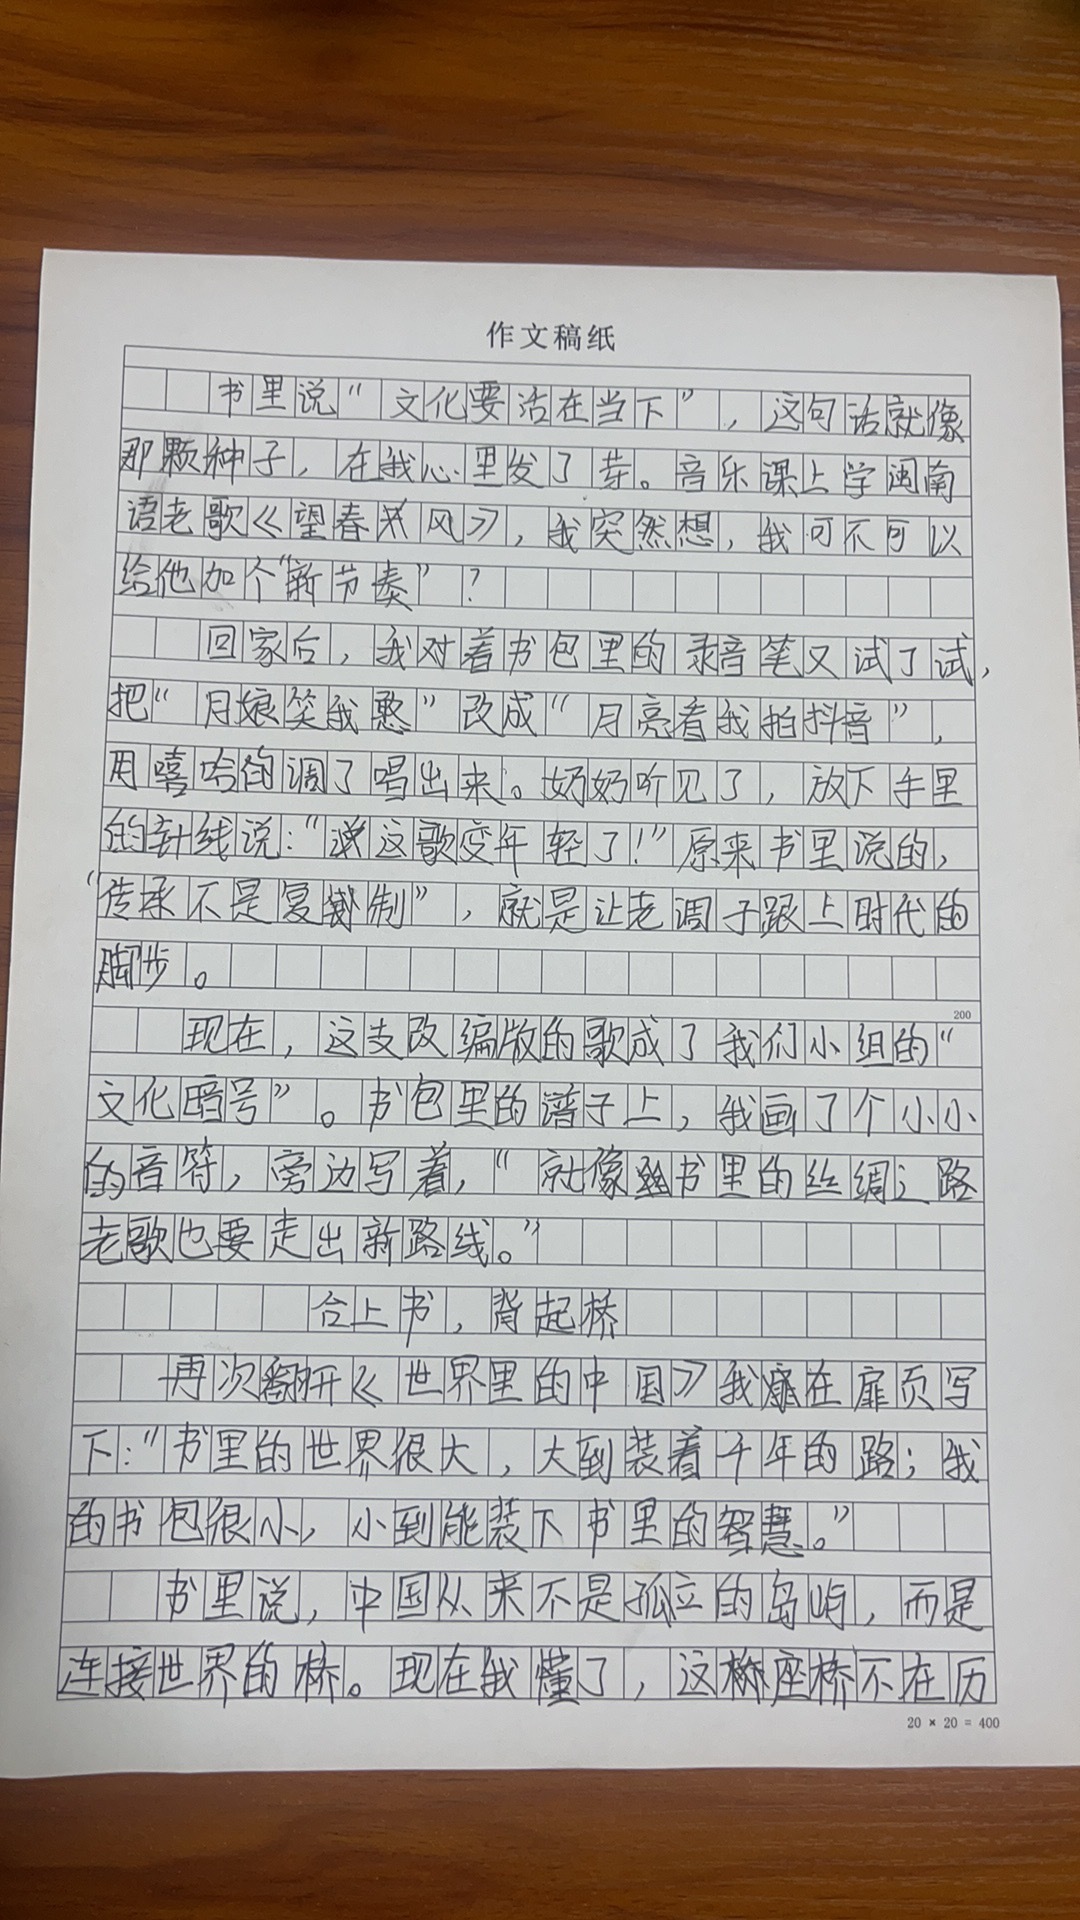 作文稿纸
书里说“文化要活在当下”，这句话就像
那颗种子，在我心里发了芽。音乐课上学闽南
语老歌《望春风》，我突然想，我可不可以
给他加个“新节奏”？
回家后，我对着书包里的录音笔又试了试，
把“月娘笑我憨”改成“月亮看我拍抖音”，
用嘻哈的调了唱出来。奶奶听见了，放下手里
的针线说：“这歌变年轻了！”原来书里说的，
“传承不是复制”，就是让老调子跟上时代的
脚步。
200
现在，这支改编版的歌成了我们小组的“
文化暗号”。书包里的谱子上，我画了个小小
的音符，旁边写着，“就像书里的丝绸之路
老歌也要走出新路线。”
合上书，背起桥
再次翻开《世界里的中国》我在扉页写
下：“书里的世界很大，大到装着千年的路；我
的书包很小，小到能装下书里的智慧。”
书里说，中国从来不是孤立的岛屿，而是
连接世界的桥。现在我懂了，这座桥不在历
20 × 20 = 400